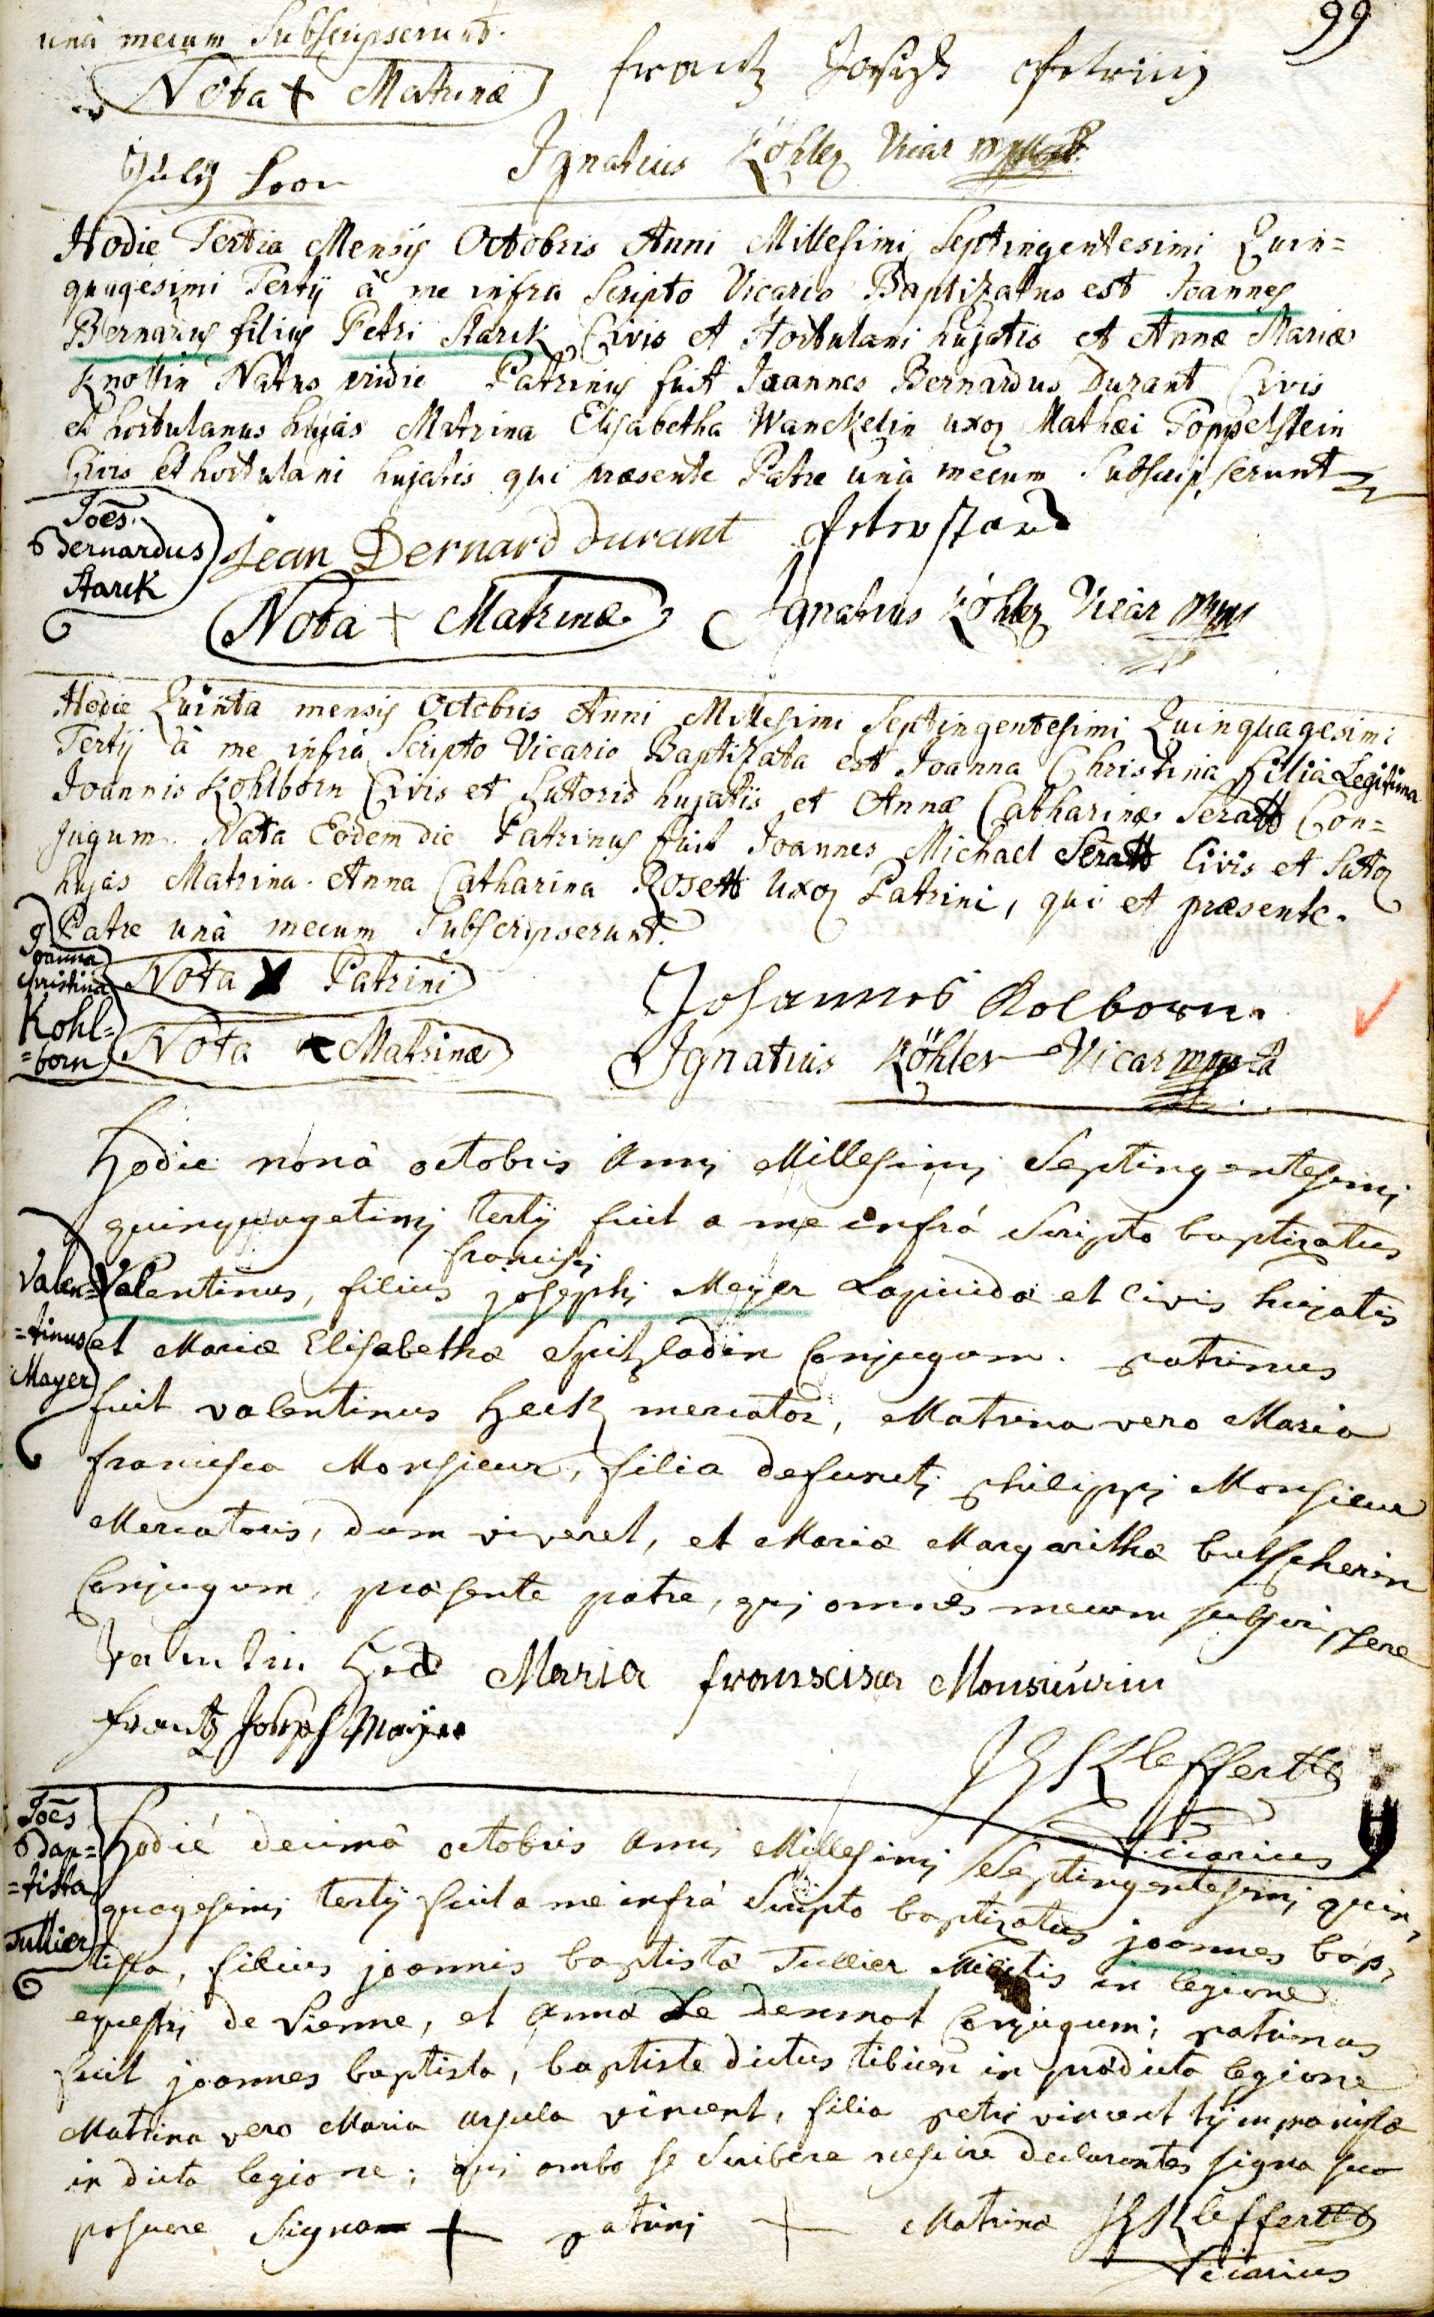 99
unà mecum Subscripserunt.
Nota + Matrinæ
frantz Joseph
July
Ignatius Köhler Vicar
Hodie Tertia Mensis Octobris Anni Millesimi Septingentesimi Quin=
quagesimi Tertij à me infra Scripto Vicario Baptizatus est Joannes
Bernarus filius Petri Starck Civis et Hortulani hujatis et Annæ Mariæ
Knottin Natus pridie Patrinus fuit Joannes Bernardus Durant Civis
et hortulanus hujas Matrina Elisabetha Wanckelin uxor Mathæi Poppelstein
Civis et hortulani hujatis qui præsente Patre unà mecum Subscripserunt
Joes
Bernardus
Starck
jean Bernard durant
Nota + Matrinæ
Ignatius Köhler Vicar
Hodie Quinta mensis Octobris Anni Millesimi Septingentesimi Quinquagesimi
Tertij à me infrà Scripto Vicario Baptizata est Joanna Christina filia Legitima
Joannis Kohlborn Civis et Sutoris hujatis et Annæ Catharinæ Seratt Con=
jugum. Nata Eodem die Patrinus fuit Joannes Michael Seratt Civis et Sutor
hujas Matrina Anna Catharina Rosett Uxor Patrini, qui et præsente
Patre unà mecum Subscripserunt.
Joanna
Christina
Kohl=
=born
Nota X Patrini
Johannes Kolborn.
Nota + Matrinæ
Ignatius Köhler Vicar
Hodie nonâ octobris anni Millesimi Septingentesimi
quinquagetimi tertij fuit a me infrá Scripto baptizatus
francisci
Valentinus, filius josephi Meyer Lapicidæ et Civis hujatis
Valen=
=tinus
Mayer
et Mariæ Elisabethæ Spitzladin Conjugum. patrinus
fuit valentinus Heck mercator, Matrina vero Maria
francisca Monsieur, filia defuncti philippi Monsieur
Mercatoris, dum viveret, et Mariæ Margarithæ butscherin
Conjugum, præsente patre, qui omnes mecum subscripsere
Valentin Maria franscisca Monsieurin
frantz Joseph Mayer
Kleffertts
Vicarius
Joes
Bap=
=tista
Tullier
Hodié decimâ octobris anni Millesimi Septingentesimi quin,
quagesimi tertij fuit a me infrá Scripto baptizatus joannes bap,
tista, filius joannis baptistæ Tullier Militis in legione
equestri de Vienne, et annæ de Conjugum; patrinus
fuit joannes baptista, baptiste dictus tibicen in prædicta legione
Matrina vero Maria ursula vincent, filia petri vincent
in dicta legione; qui ambo se scribere nescire declarantes signa sua
posuere Signa + patrini + Matrinæ Kleffertts
Vicarius